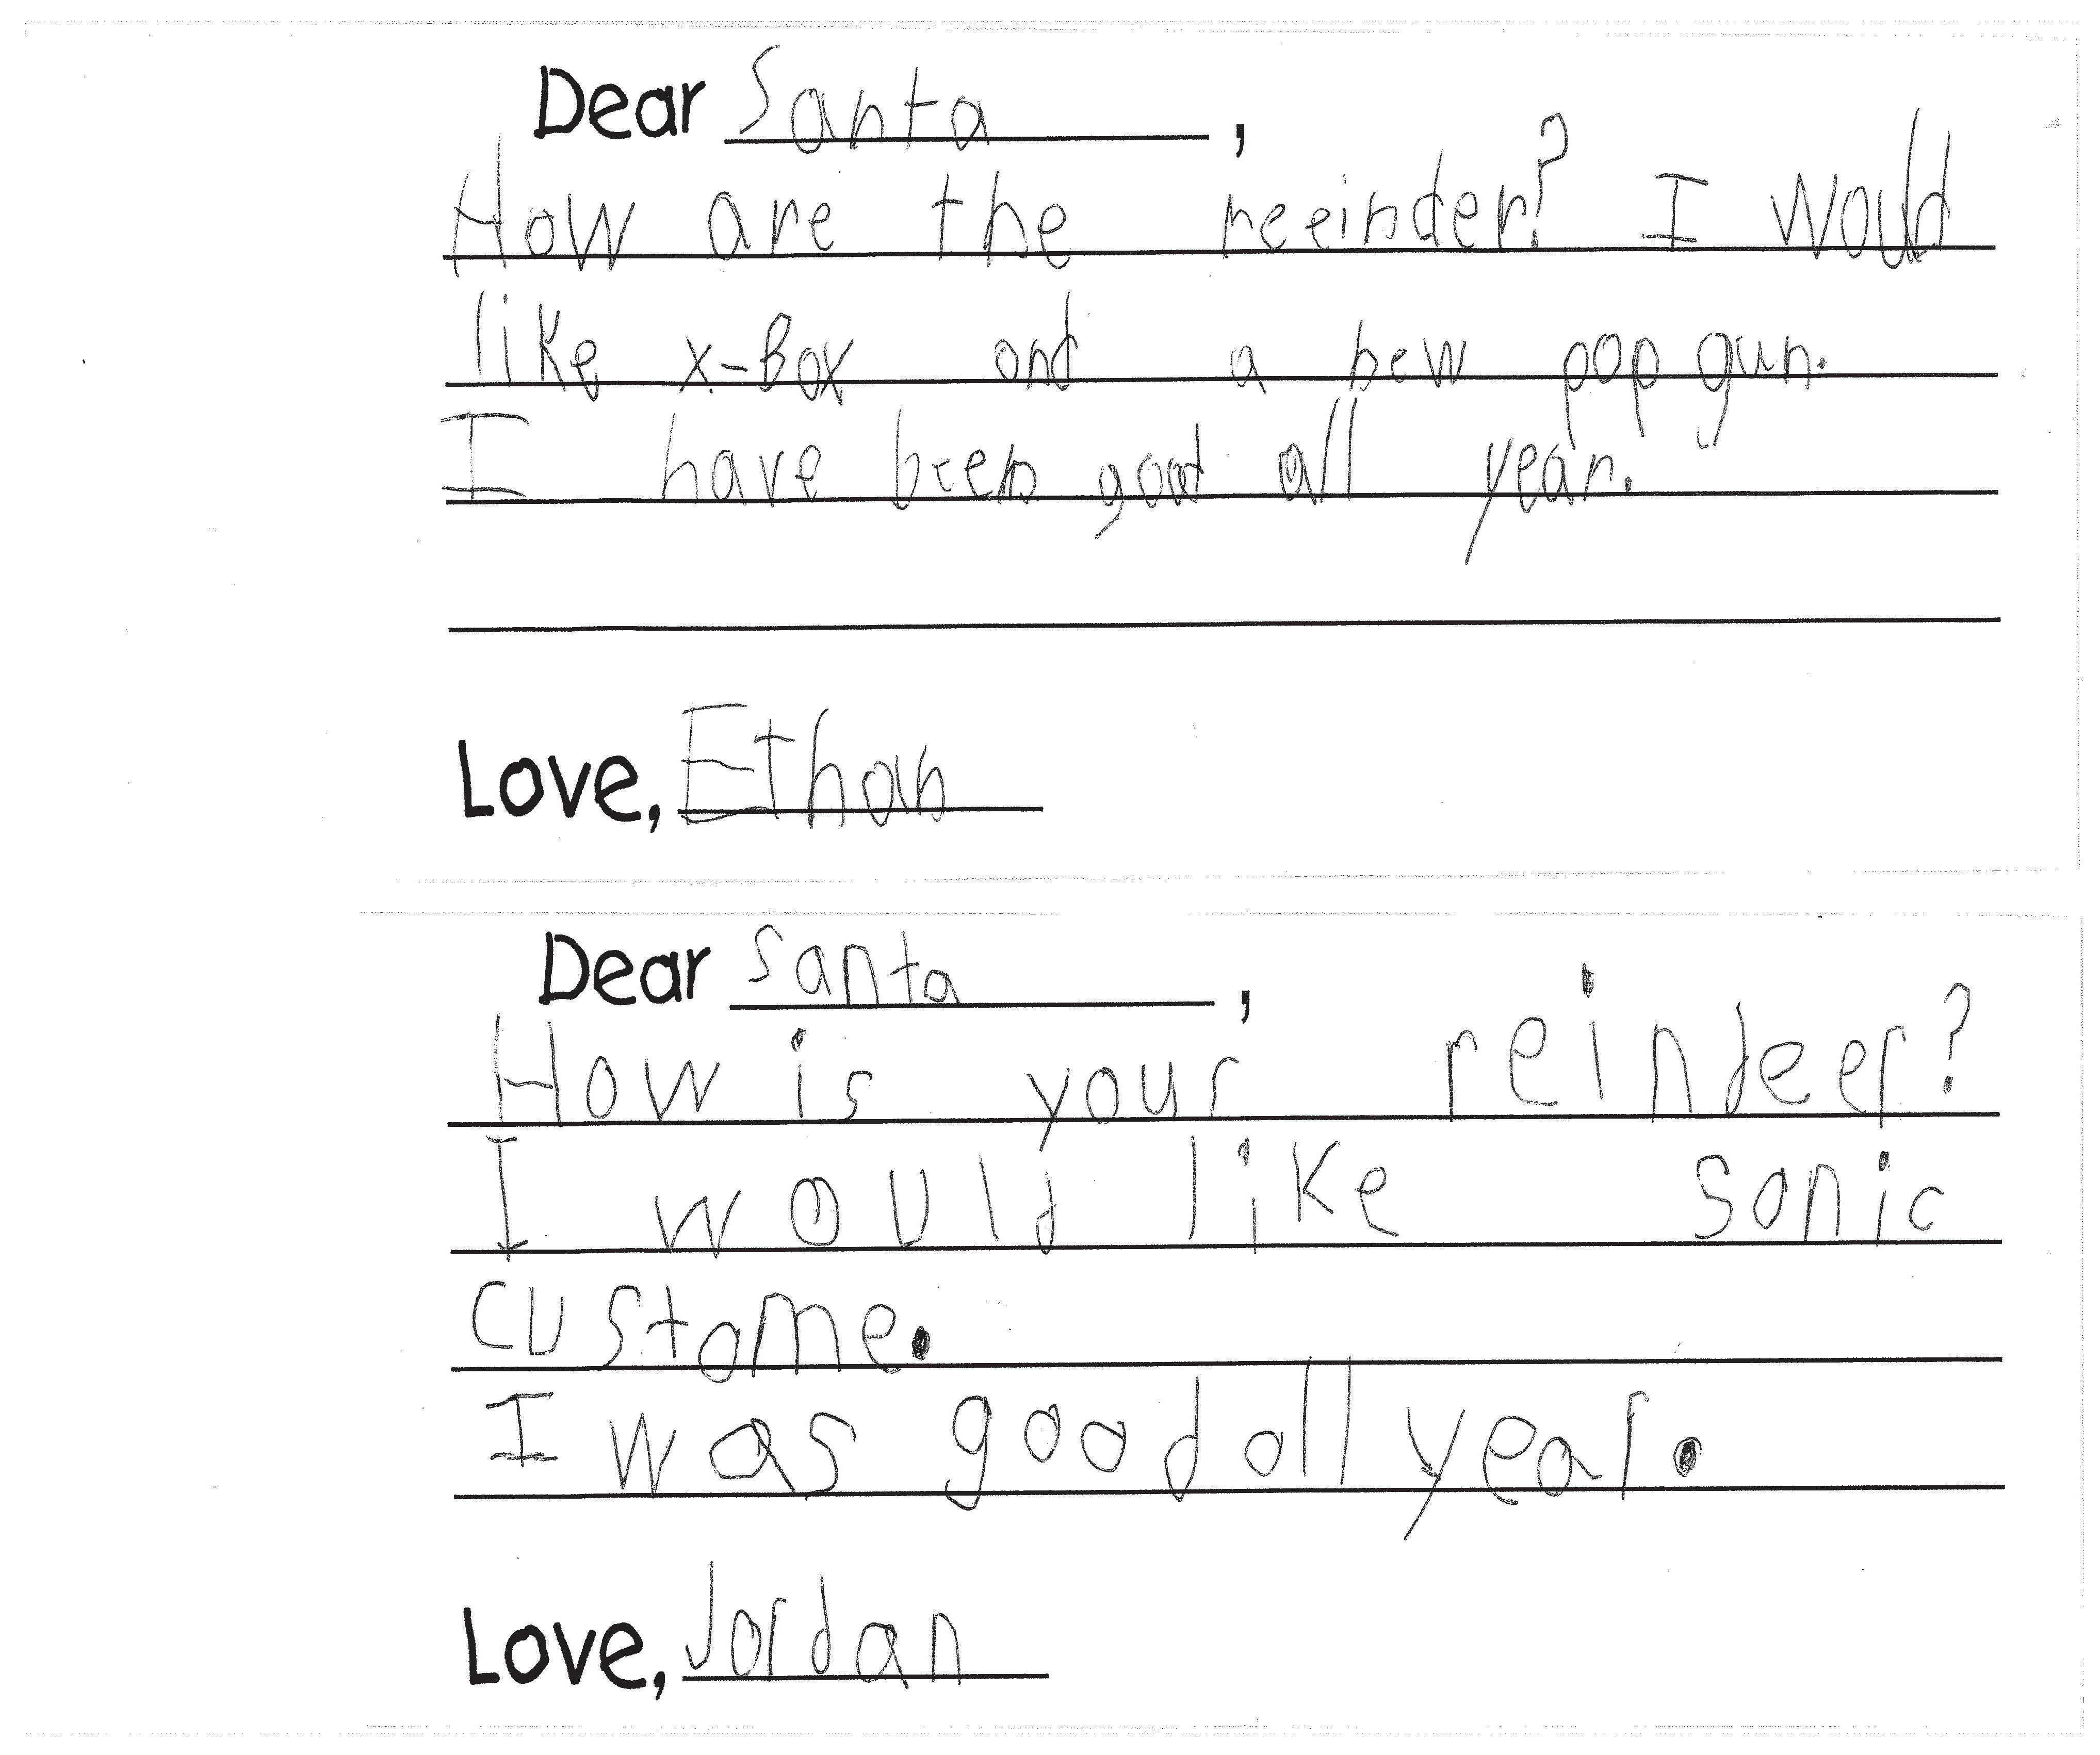 Dear Santa,
How are the reeinder? I would
like x-Box and a new pop gun.
I have been good all year.
Love, Ethan
Dear Santa,
How is your reindeer?
I would like sonic
custome.
I was good all year.
Love, Jordan